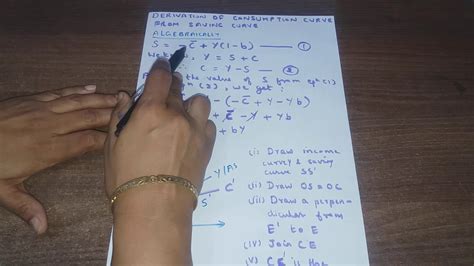 DERIVATION OF CONSUMPTION CURVE
FROM SAVING CURVE
ALGEBRAICALLY
S = -C̅ + Y(1-b) — (1)
Y = S + C
C = Y - S — (2)
the value of S from eqn (1)
(2), we get:
- (-C̅ + Y - Yb)
+ C̅ - Y + Yb
+ bY
Y/AS
C'
S'
(i) Draw income
curve & saving
curve SS'
(ii) Draw OS = OC
(iii) Draw a perpen-
dicular from
E' to E
(iv) Join CE
(v) CC' is the